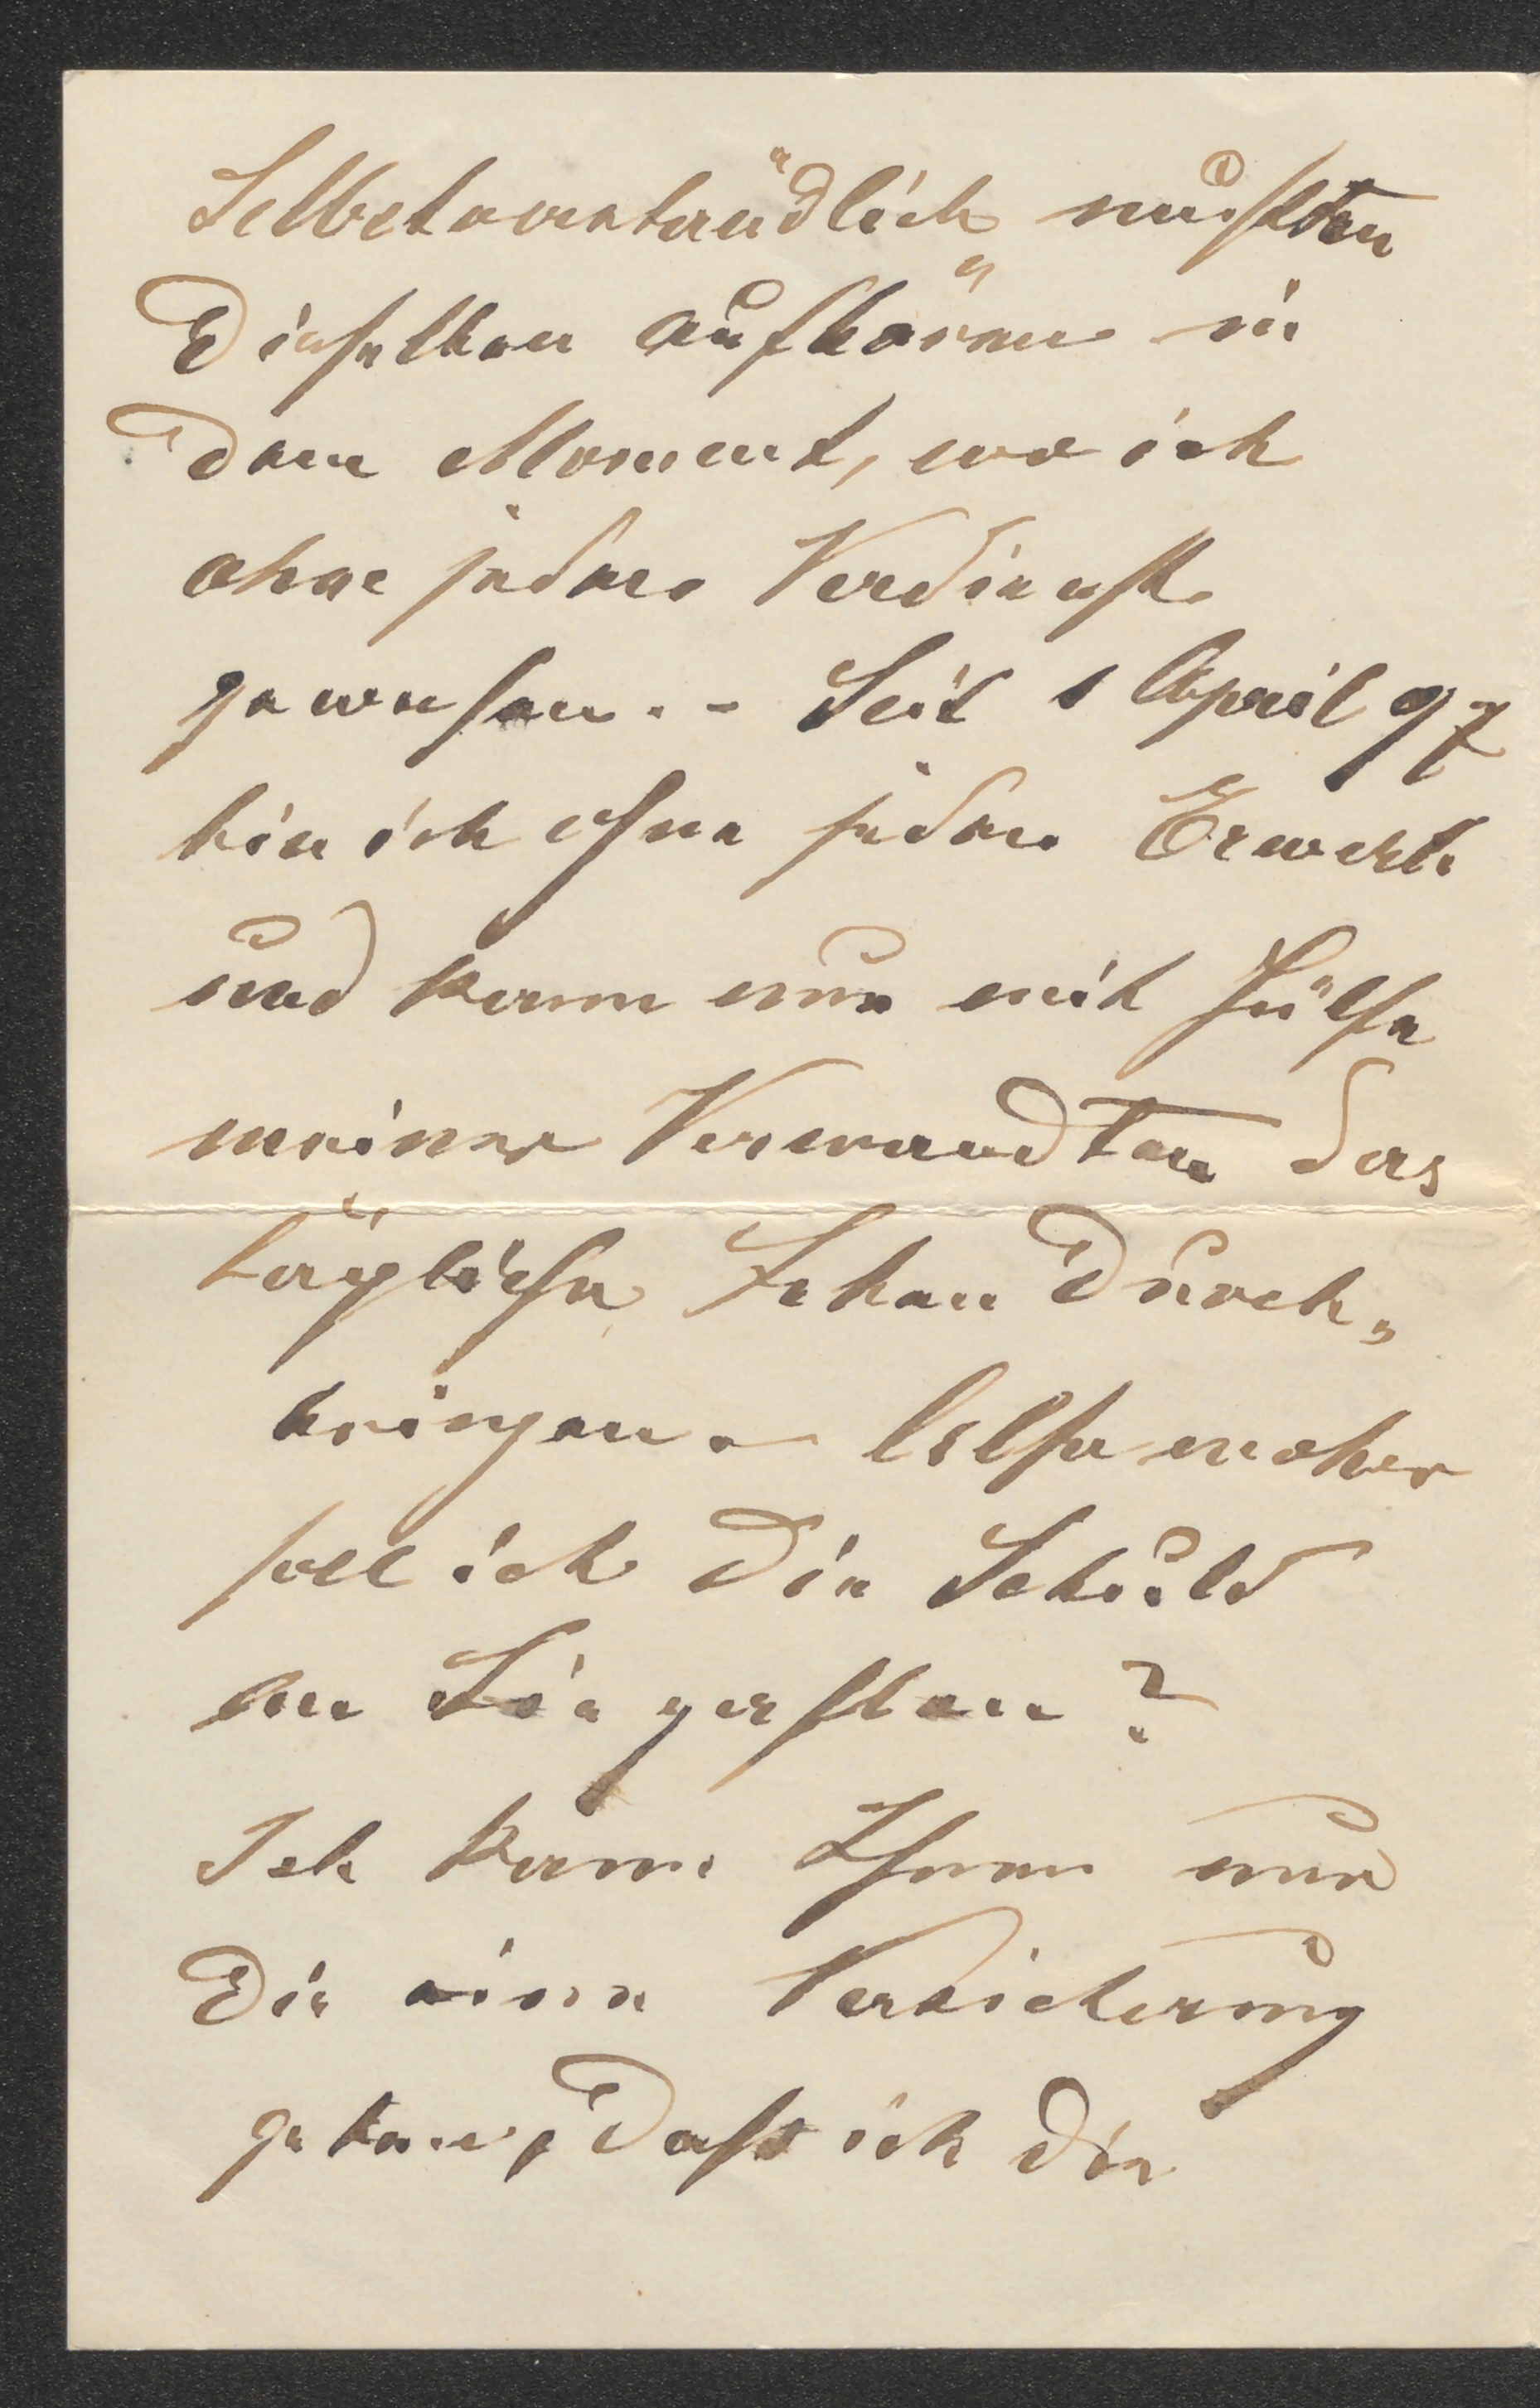 Selbstverständlich mußten
dieselben aufhören in
dem Moment, wo ich
ohne jeden Verdienst
gewesen. - Seit 1 April 97
bin ich ohne jeden Erwerb
und kann nur mit Hülfe
meiner Verwandten das
tägliche Leben durch„
bringen - Also woher
soll ich die Schuld
an Sie gestten?
Ich kann Ihnen nur
die eine Versicherung
geben, daß ich die